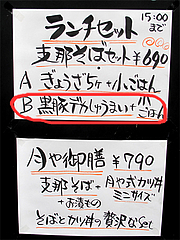 ランチセット 15:00まで
支那そばセット ¥690
A ぎょうざ5ヶ+小ごはん
B 黒豚デカしゅうまい+小ごはん
月や御膳 ¥790
支那そば+月や式カツ丼ミニサイズ
+お漬もの
そばとカツ丼の贅沢なSet